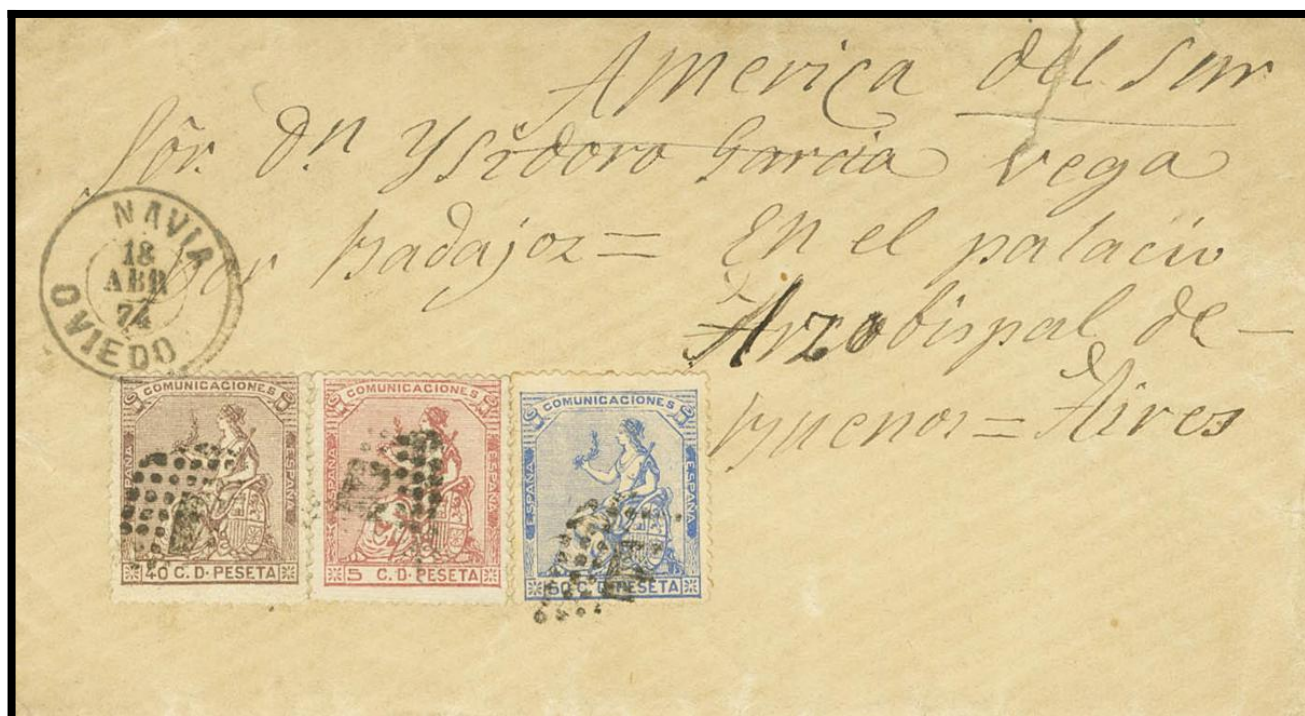 America del Sur
Sõr. Dn Ysidoro Garcia Vega
por Badajoz = En el palacio
Arzobispal de —
Buenos = Aires
NAVIA
18
ABR
74
OVIEDO
COMUNICACIONES
ESPAÑA
ESPAÑA
40 C. D. PESETA
COMUNICACIONES
ESPAÑA
ESPAÑA
5 C. D. PESETA
COMUNICACIONES
ESPAÑA
ESPAÑA
50 C. D. PESETA